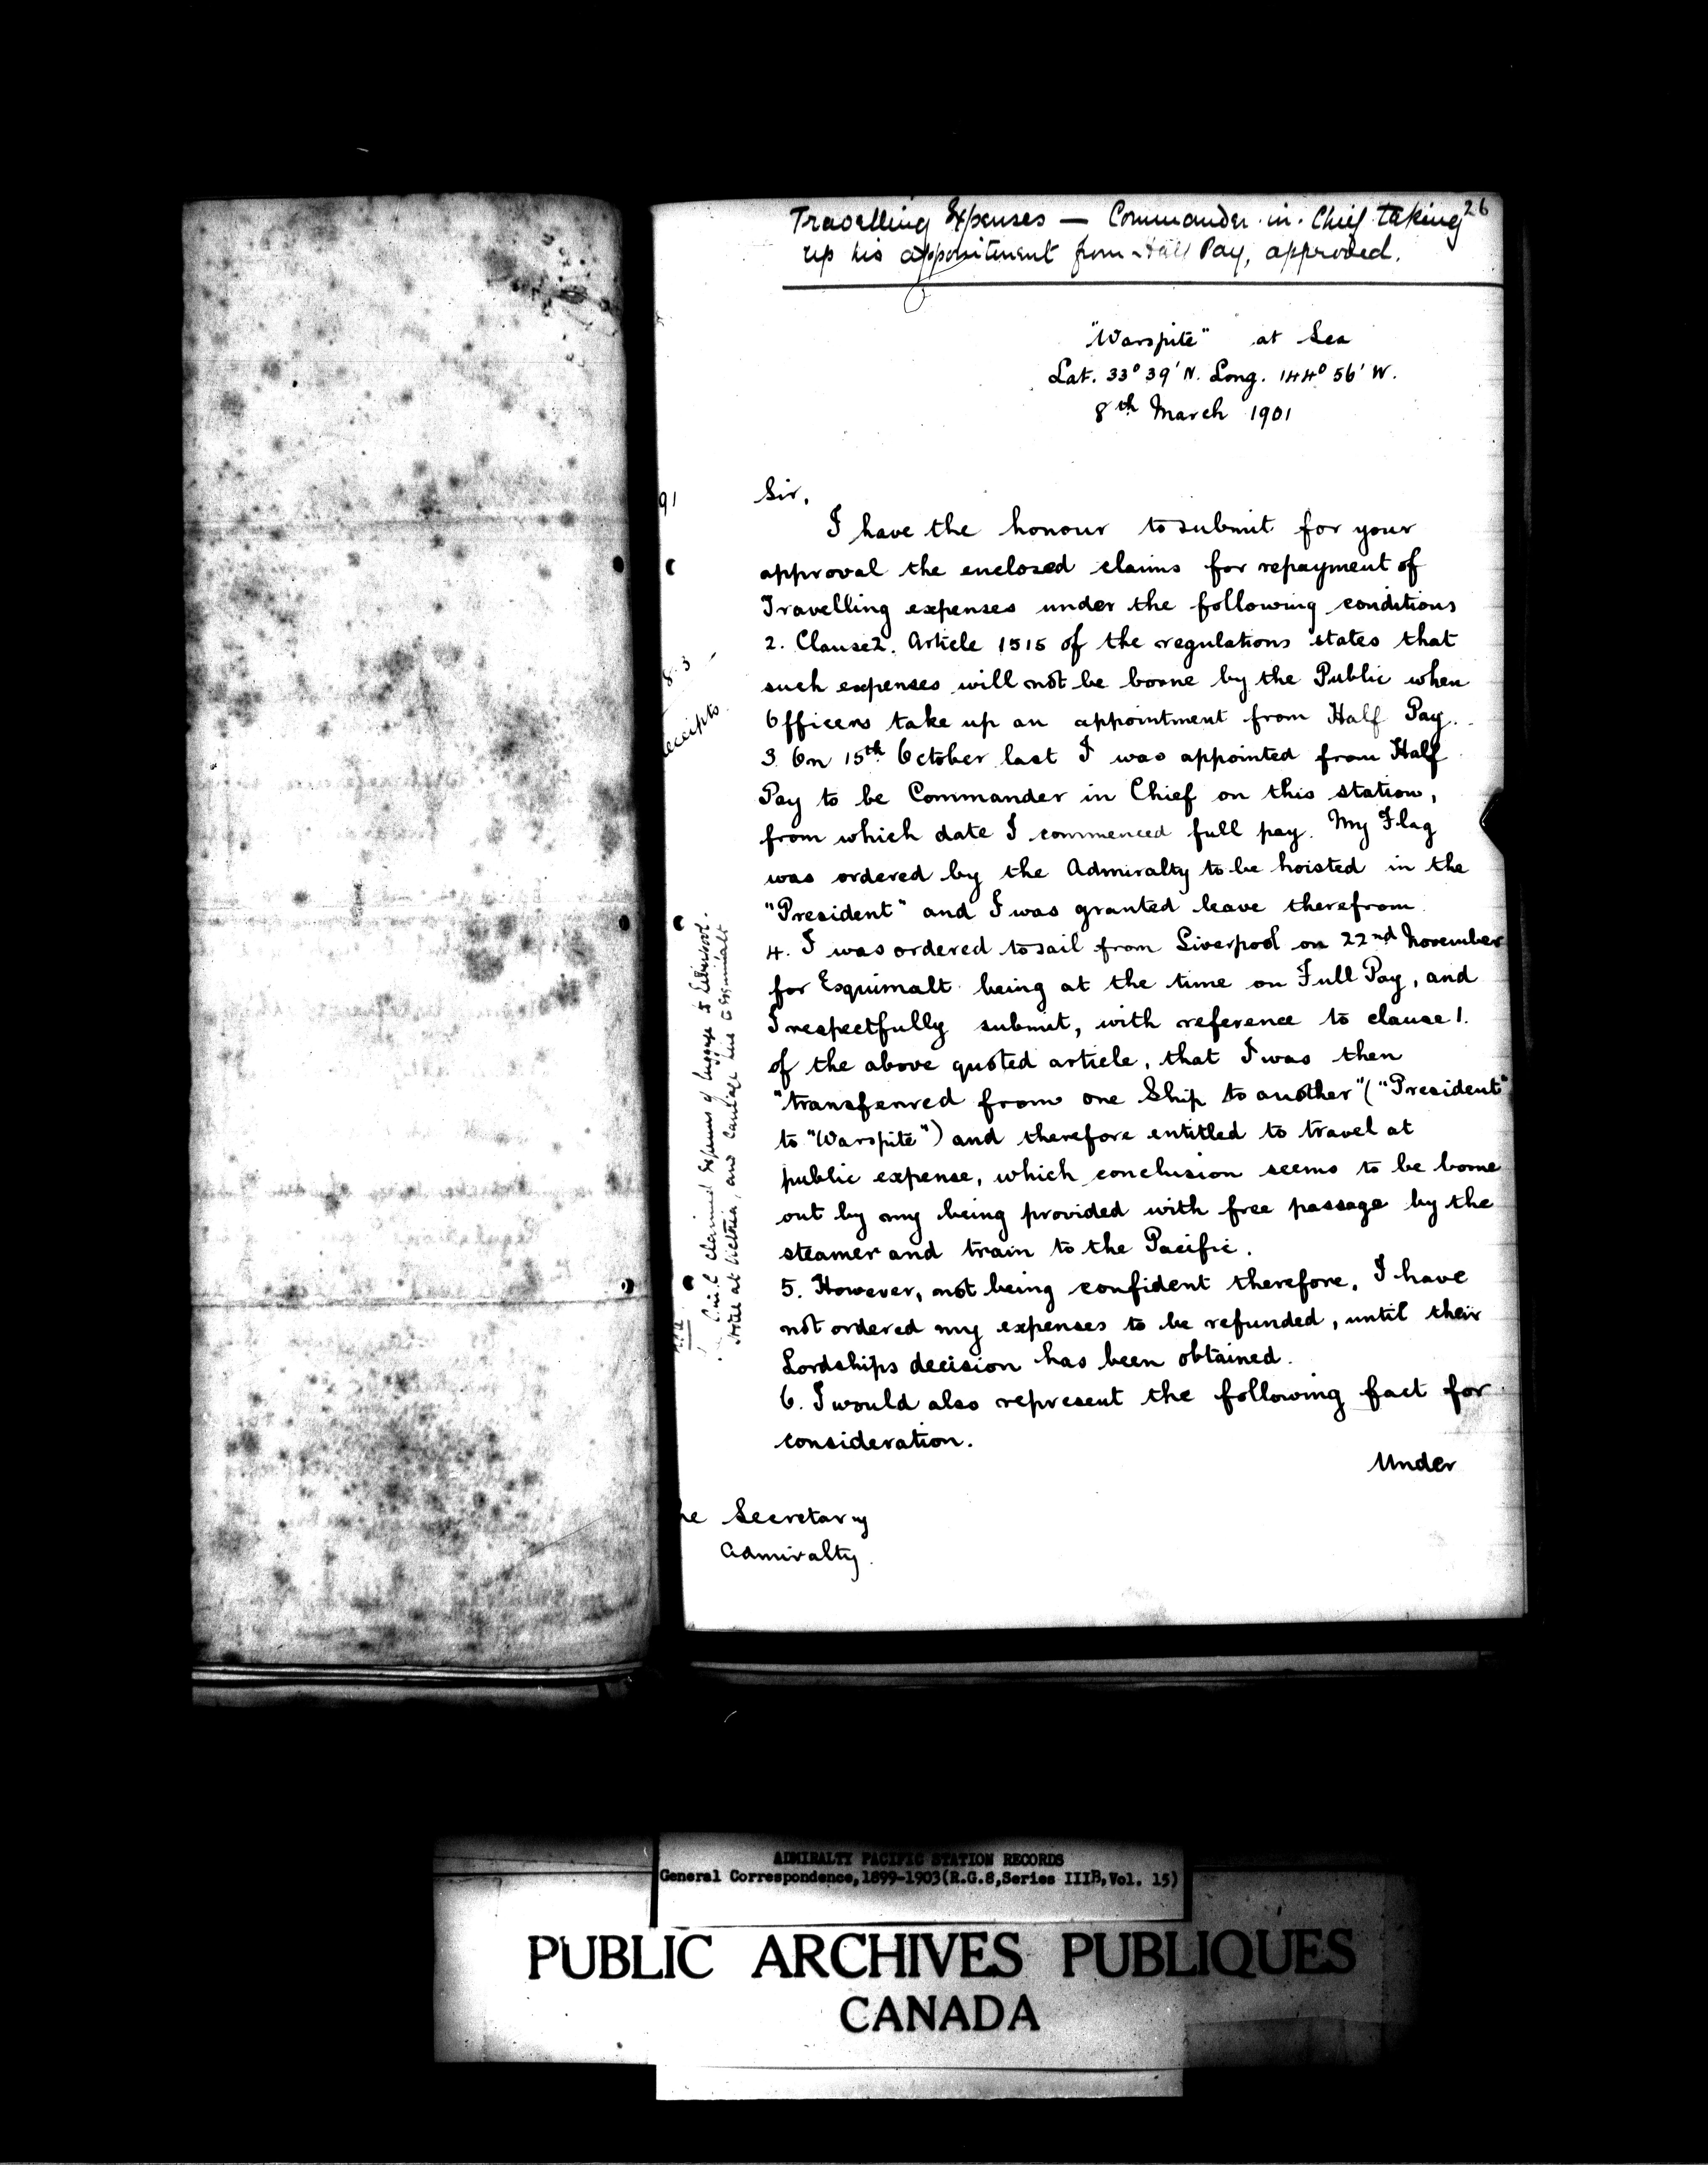 26
Travelling Expenses — Commander in Chief taking
up his appointment from Half Pay, approved.
"Warspite" at Sea
Lat. 33° 39' N. Long. 144° 56' W.
8th March 1901
91
Sir,
I have the honour to submit for your
approval the enclosed claims for repayment of
Travelling expenses under the following conditions
2. Clause 2. Article 1515 of the regulations states that
such expenses will not be borne by the Public when
Officers take up an appointment from Half Pay.
3. On 15th October last I was appointed from Half
Pay to be Commander in Chief on this station,
from which date I commenced full pay. My Flag
was ordered by the Admiralty to be hoisted in the
"President" and I was granted leave therefrom
4. I was ordered to sail from Liverpool on 22nd November
for Esquimalt being at the time on Full Pay, and
I respectfully submit, with reference to clause 1.
of the above quoted article, that I was then
"transferred from one Ship to another" ("President"
to "Warspite") and therefore entitled to travel at
public expense, which conclusion seems to be borne
out by my being provided with free passage by the
steamer and train to the Pacific.
5. However, not being confident therefore, I have
not ordered my expenses to be refunded, until their
Lordships decision has been obtained.
6. I would also represent the following fact for
consideration.
Under
he Secretary
Admiralty.
8.3
eceipts
C. in C. claimed Expenses of luggage to Liverpool.
Hotel at Victoria, and Carriage hire to Esquimalt
ADMIRALTY PACIFIC STATION RECORDS
General Correspondence, 1899-1903 (R.G.8, Series IIIB, Vol. 15)
PUBLIC ARCHIVES PUBLIQUES
CANADA